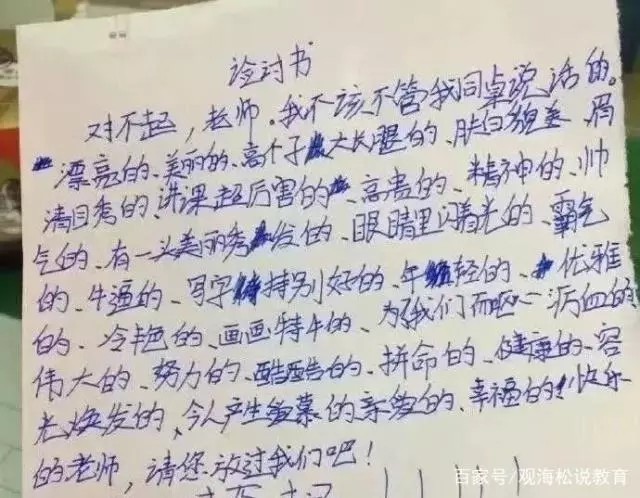 诊讨书
对不起，老师。我不该不管我同桌说话的。
漂亮的、美丽的、高个子大长腿的、肤白貌美、眉
清目秀的、讲课超厉害的、高贵的、精神的、帅
气的、有一头美丽秀发的、眼睛里闪着光的、霸气
的、牛逼的、写字持别好的、年轻的、优雅
的、冷艳的、画画特牛的、为了我们而呕心沥血的
伟大的、努力的、酷酷的、拼命的、健康的、容
光焕发的、令人产生羡慕的亲爱的、幸福的快乐
的老师，请您放过我们吧！
百家号/观海松说教育